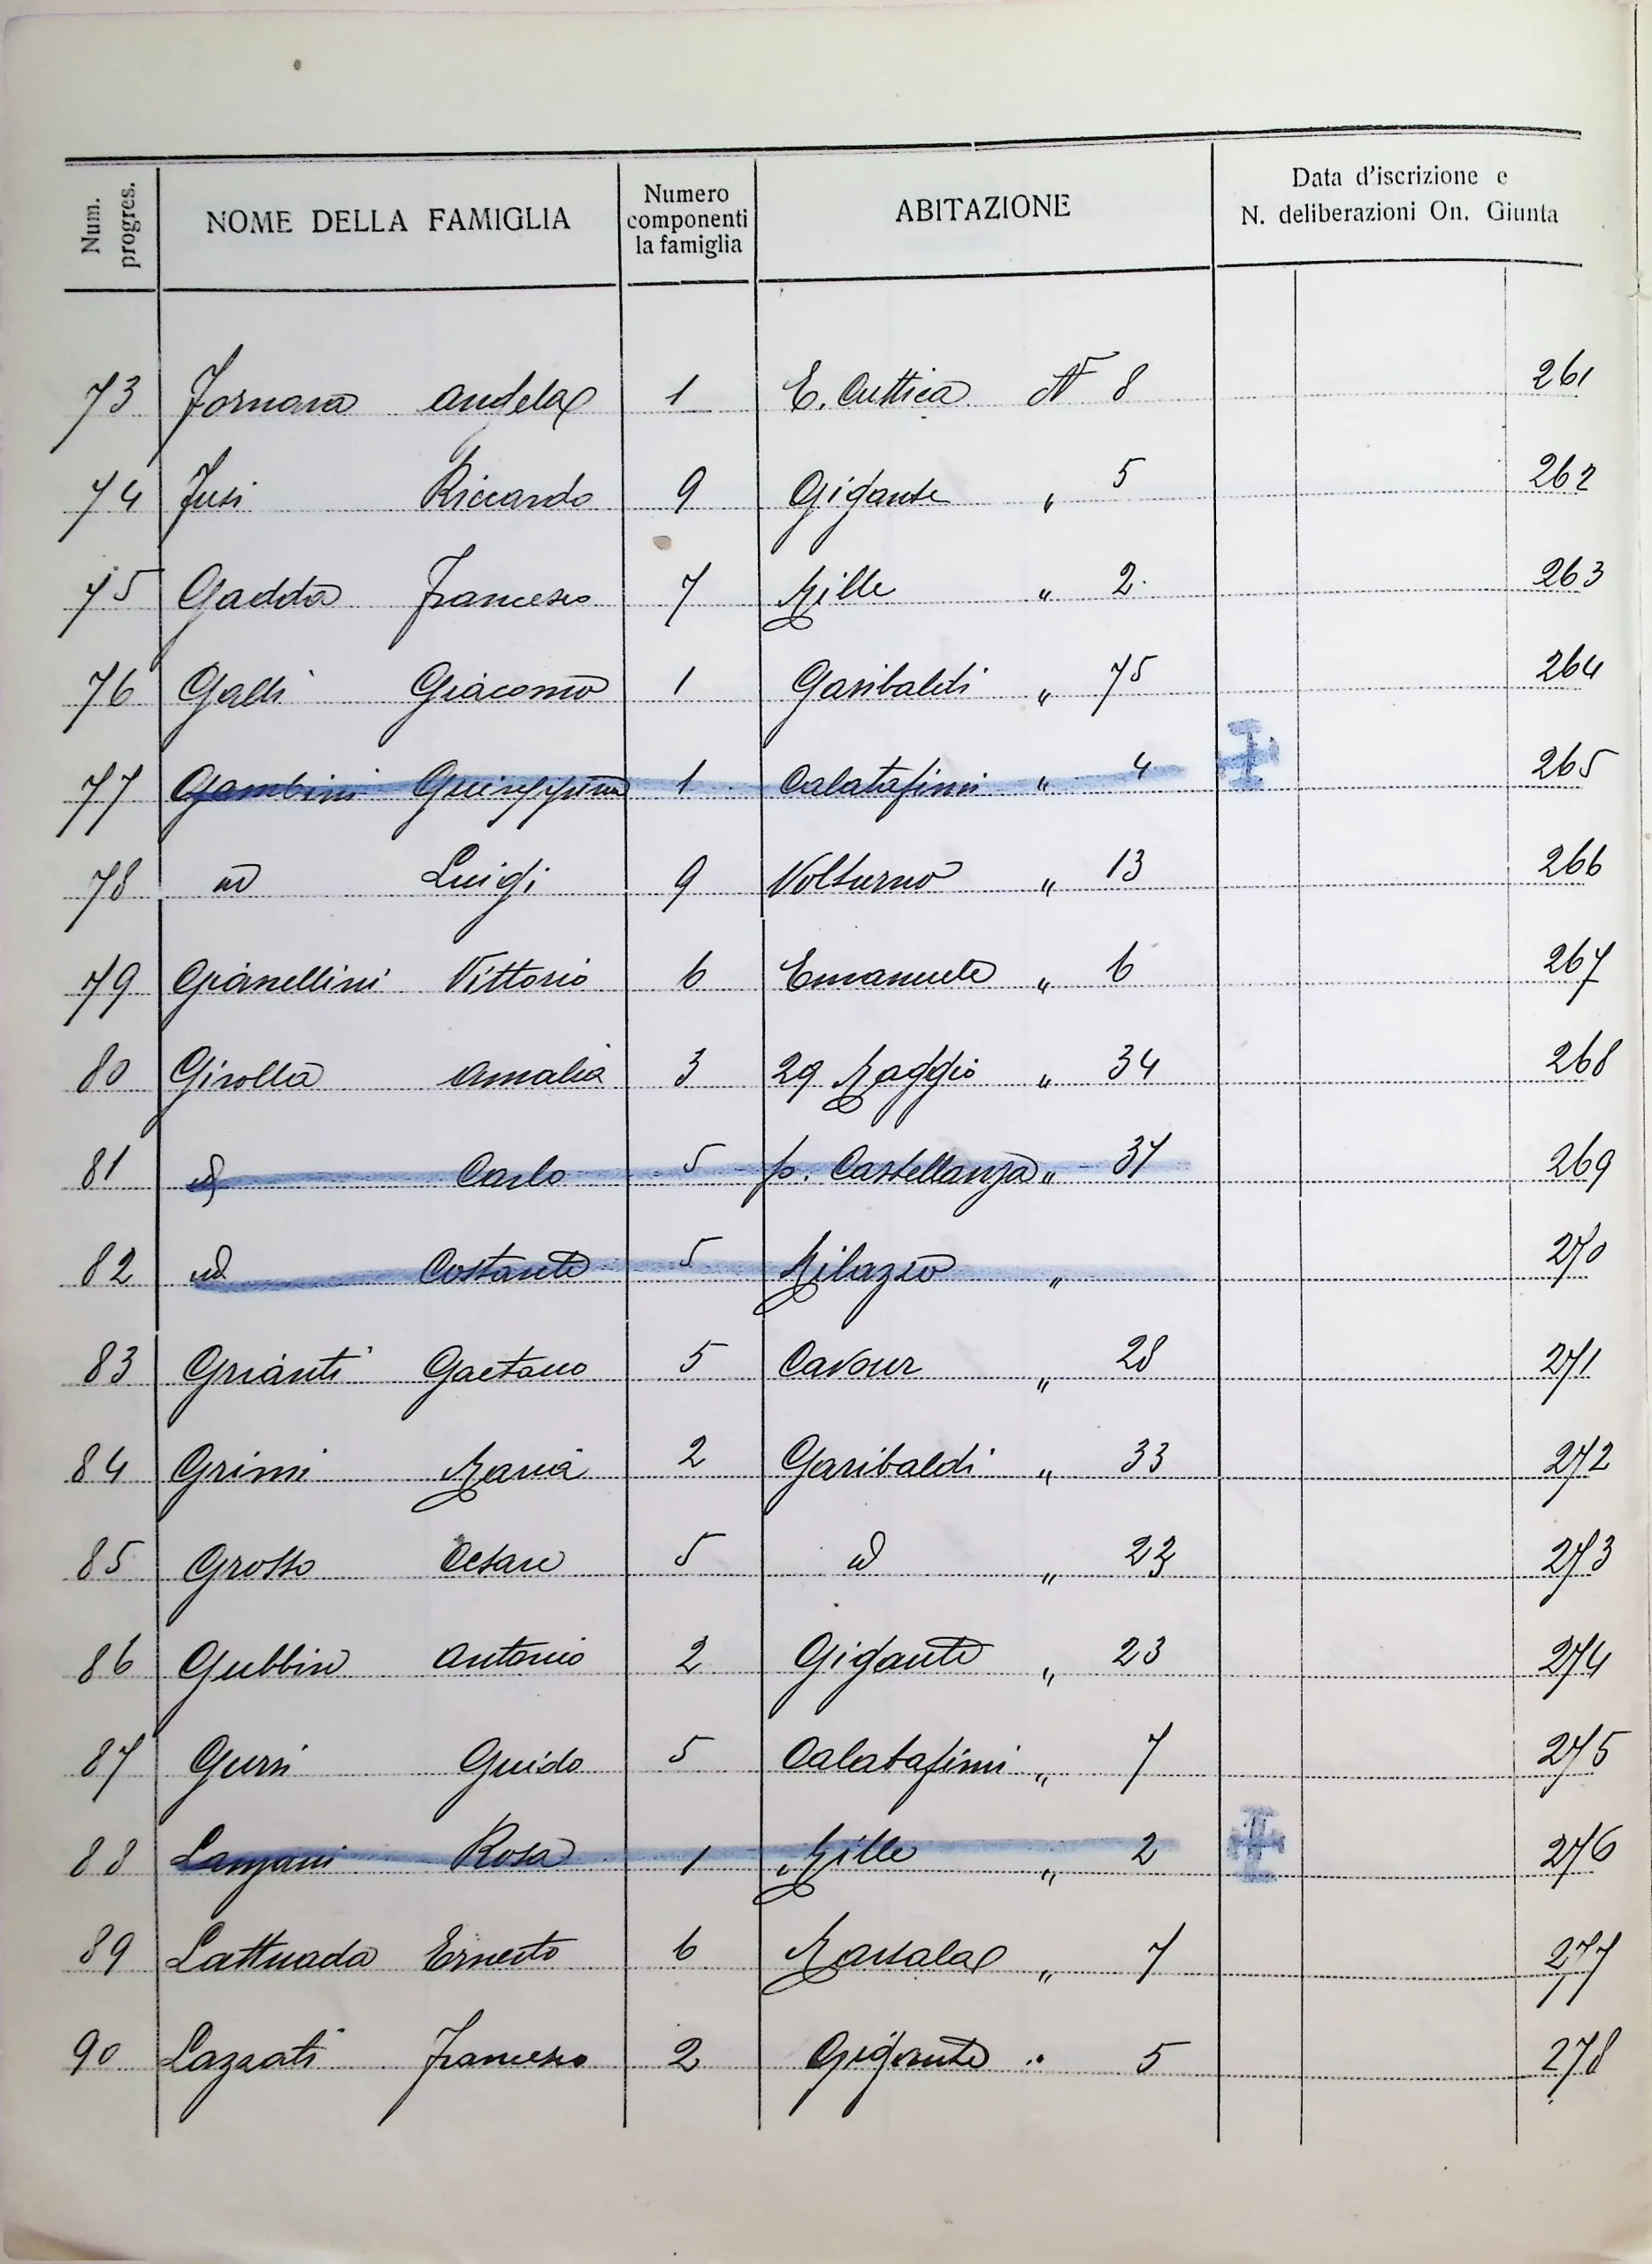 Num. progres.
NOME DELLA FAMIGLIA
Numero componenti la famiglia
ABITAZIONE
Data d'iscrizione e N. deliberazioni On. Giunta
73 Fornara Angela 1 E. Cuttica N 8 261
74 Fusi Riccardo 9 Gigante " 5 262
75 Gadda Francesco 7 Mille " 2 263
76 Galli Giacomo 1 Garibaldi " 75 264
77 Gambini Giuseppina 1 Calatafimi " 4 265
78 id Luigi 9 Volturno " 13 266
79 Gianellini Vittorio 6 Emanuele " 6 267
80 Girolla Amalia 3 29 Maggio " 34 268
81 id Carlo 5 p. Castellanza " 37 269
82 id Costante 5 Milazzo " 270
83 Grianti Gaetano 5 Cavour " 28 271
84 Grimi Maria 2 Garibaldi " 33 272
85 Grosso Cesare 5 id " 273
86 Gubbin Antonio 2 Gigante " 23 274
87 Guido 5 Calatafimi " 7 275
88 Lanzani Rosa 1 Mille " 2 276
89 Lattuada Ernesto 6 Marsala " 7 277
90 Lazzati Francesco 2 Gigante " 5 278